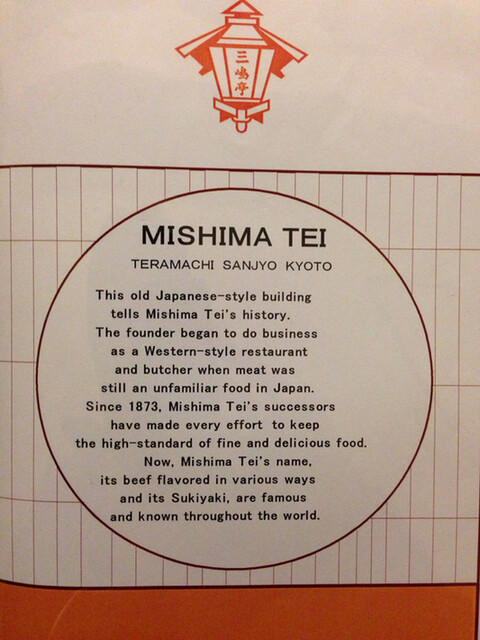 三嶋亭
MISHIMA TEI
TERAMACHI SANJYO KYOTO
This old Japanese-style building
tells Mishima Tei's history.
The founder began to do business
as a Western-style restaurant
and butcher when meat was
still an unfamiliar food in Japan.
Since 1873, Mishima Tei's successors
have made every effort to keep
the high-standard of fine and delicious food.
Now, Mishima Tei's name,
its beef flavored in various ways
and its Sukiyaki, are famous
and known throughout the world.